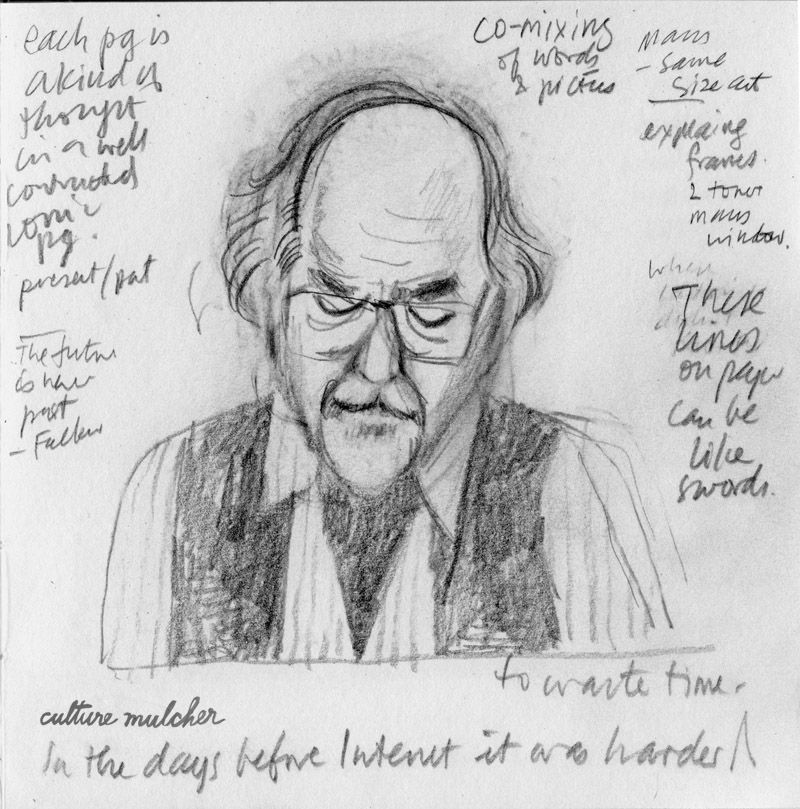 each pg is
a kind of
thought
in a well
constructed
comic
pg.
present/past
The future
is now
past
co-mixing
of words
& pictures
Maus
- same
size art
explaining
frames.
2 toner
maus
window.
when
These
lines
on paper
can be
like
swords.
to waste time.
culture mulcher
In the days before Internet it was harder